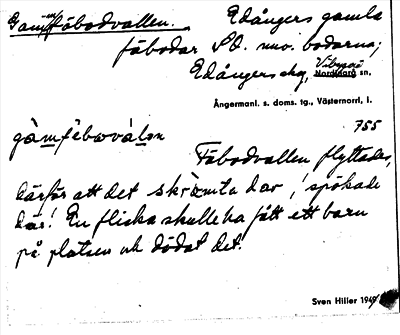 Gamfäbodvallen. Edångers gamla
fäbodar SO. om. bodarna;
Edånger skg, Vibyggerå
Nordingrå sn,
Ångermanl. s. doms. tg., Västernorrl. l.
755
gàmfèbωvàlən
Fäbodvallen flyttades,
därför att det skrämta där, spökade
där! En flicka skulle ha fått ett barn
på platsen och dödat det.
Sven Hiller 1949